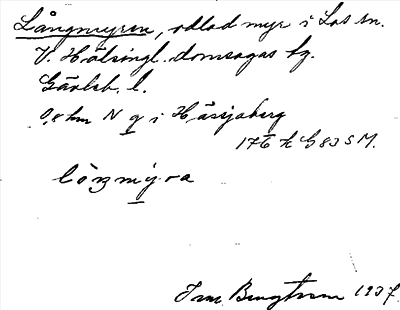 Långmyren, odlad myr i Los sn.
V. Hälsingl. domsagas tg.
Gävleb. l.
0,8 km N g i Hässjaberg
176 h G 83 S M.
lòŋmy̆ra
Bengtsson 1937.